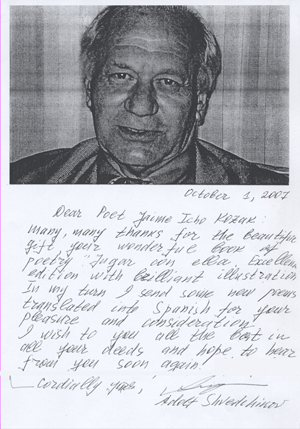 October 1, 2007
Dear Poet Jaime Icho Kozak:
many, many thanks for the beautiful
gift, your wonderful book of
poetry "Jugar con ella. Excellent
edition with brilliant illustration
In my turn I send some new poems
translated into Spanish for your
pleasure and consideration.
I wish to you all the best in
all your deeds and hope to hear
from you soon again.
Cordially yours,
Adolf Shvedchikov